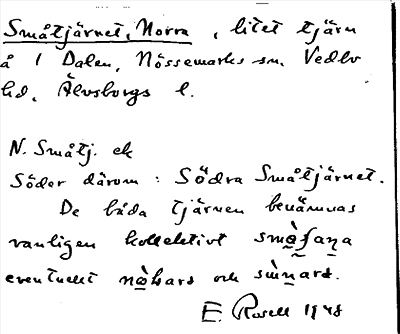 Småtjärnet, Norra, litet tjärn
å 1 Dalen, Nössemarks sn. Vedbo
hd. Älvsborgs l.
N. Småtj. ek
Söder därom: Södra Småtjärnet.
De båda tjärnen benämnas
vanligen kollektivt
eventuellt och
E. Rosell 1948